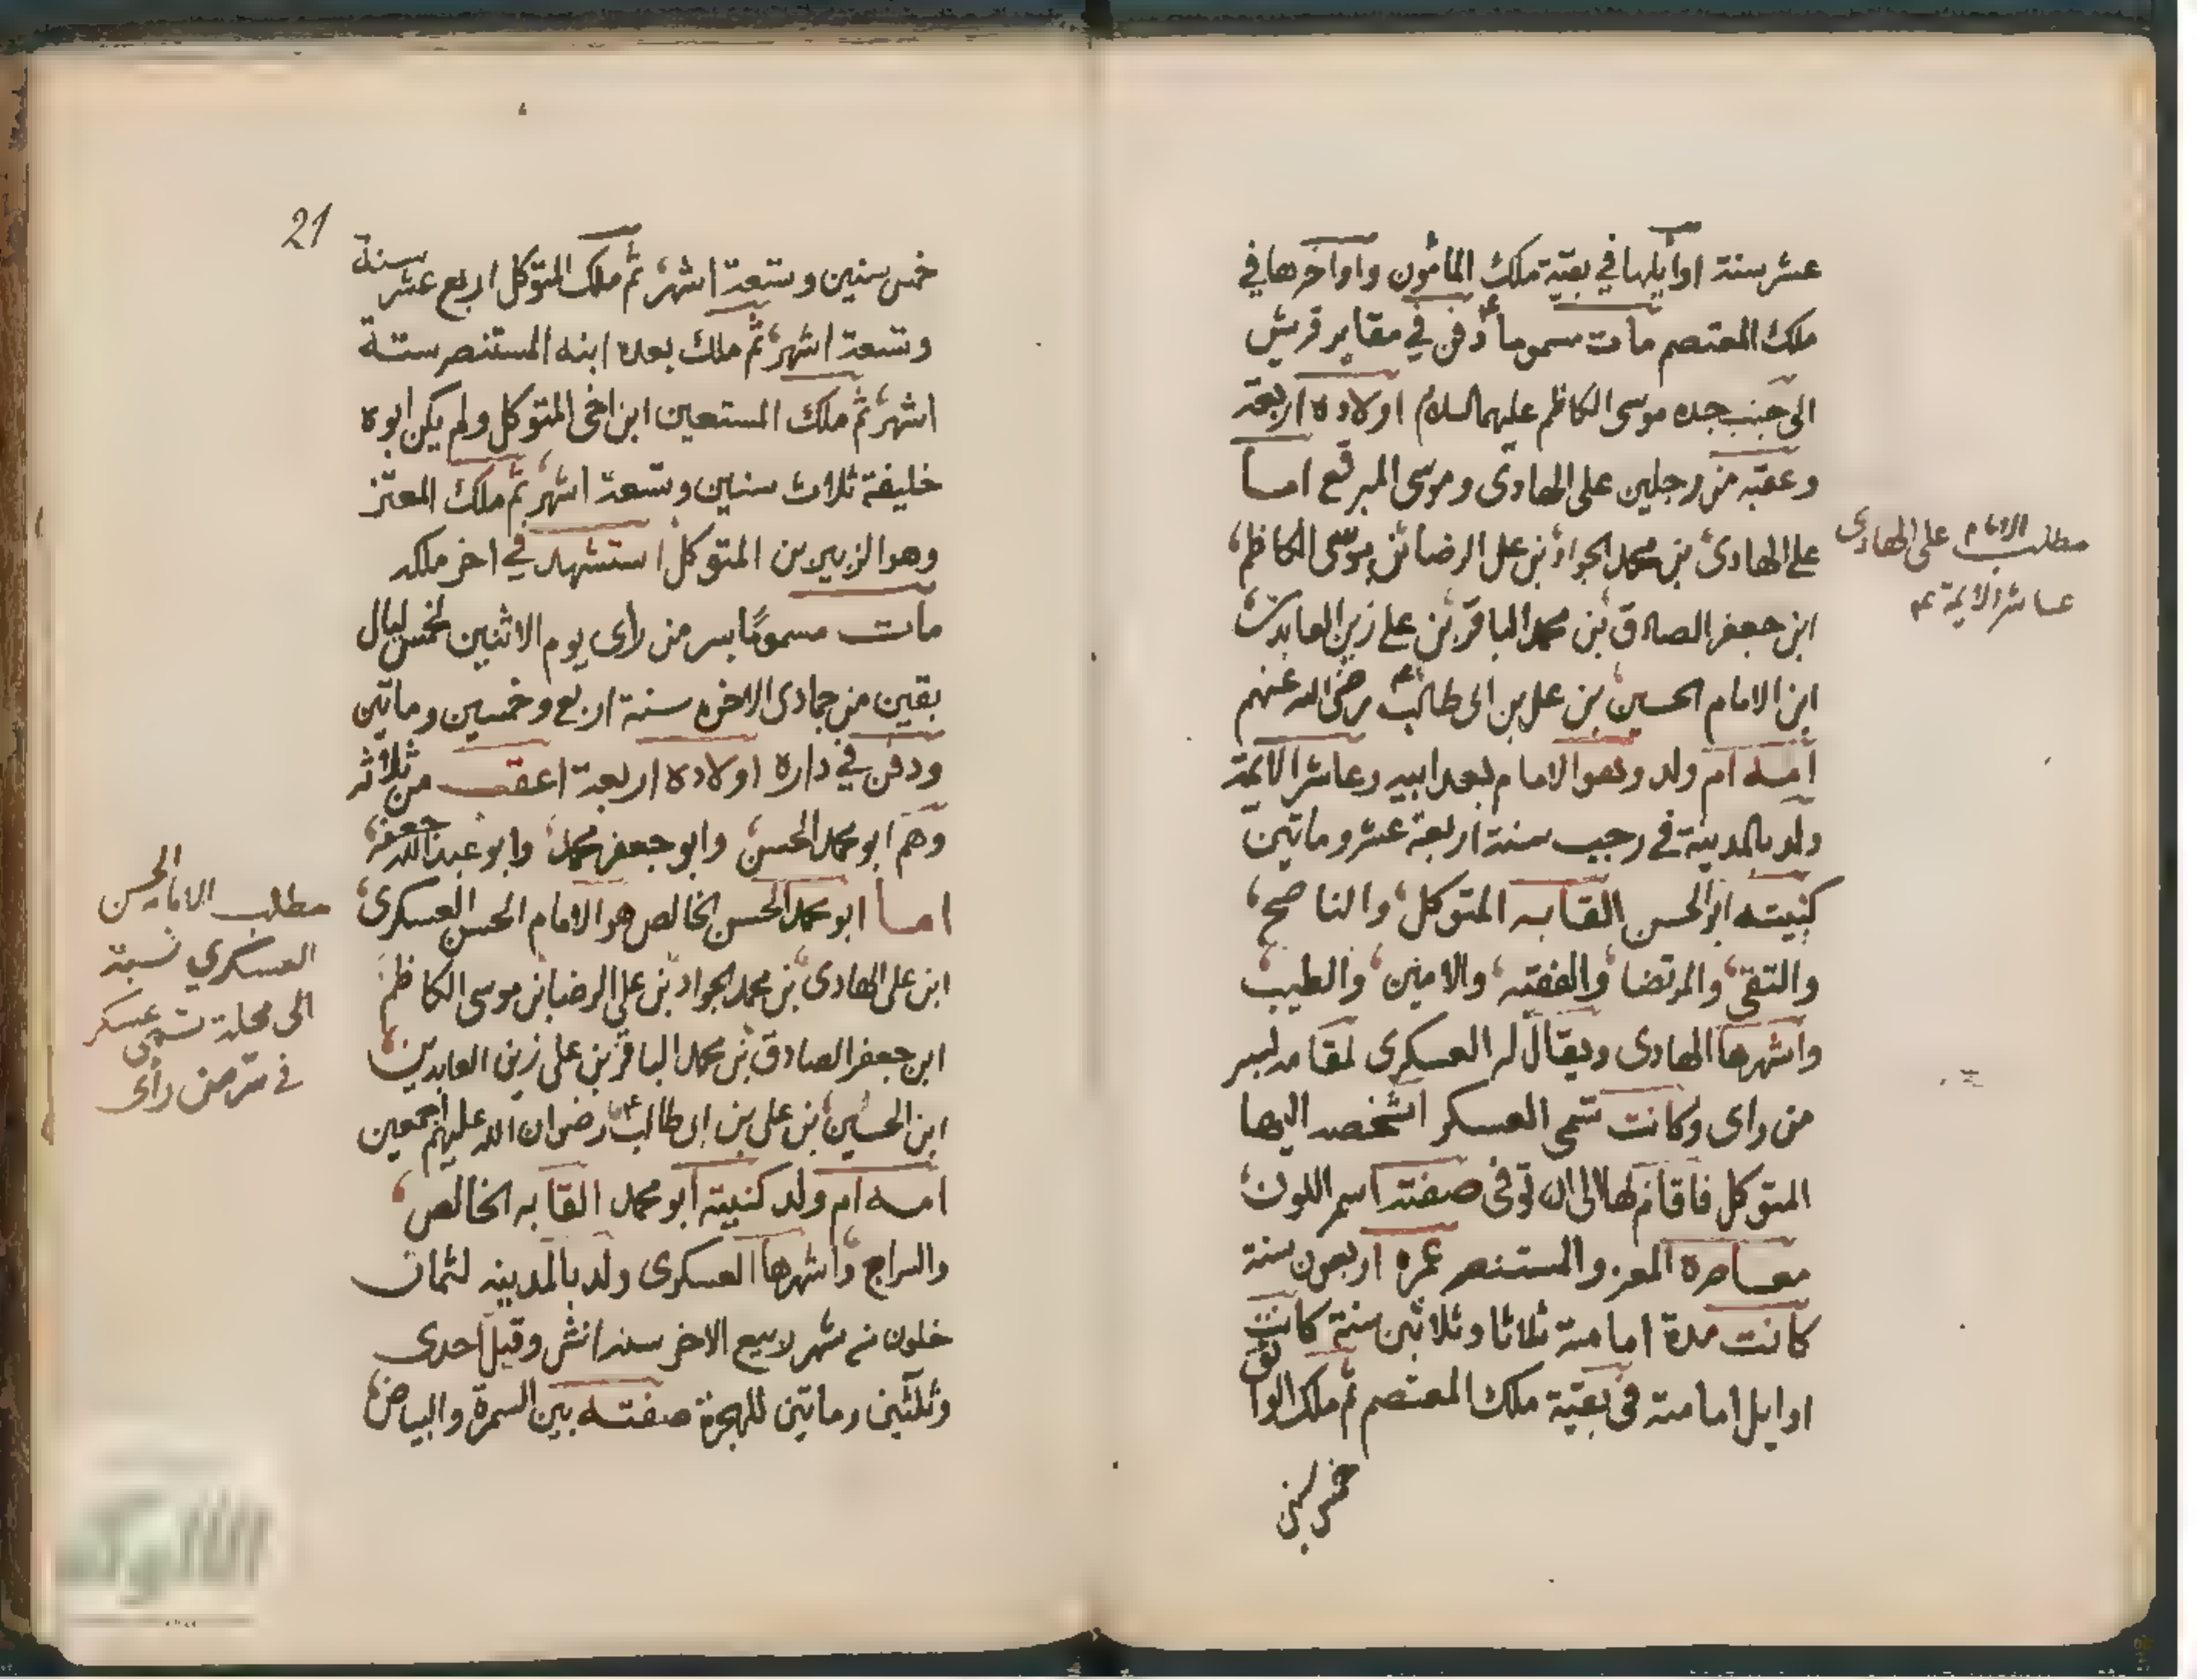 عشر سنة اوايلها في بقية ملك المأمون واواخرها في
ملك المعتصم مات مسموما دفن في مقابر قريش
الى جنب جده موسى الكاظم عليهما السلام اولاده اربعة
وعقبه من رجلين على الهادى وموسى المبرقع اما
على الهادى بن محمد الجواد بن على الرضا بن موسى الكاظم
ابن جعفر الصادق بن محمد الباقر بن على زين العابدين
ابن الامام الحسين بن على بن ابى طالب رضى الله عنهم
امه ام ولد وهو الامام بعد ابيه وعاشر الايمة
ولد بالمدينة في رجب سنة اربعة عشر وماتين
كنيته ابو الحسن القابه المتوكل والناصح
والتقى والمرتضا والفقيه والامين والطيب
واشهرها الهادى ويقال له العسكرى لمقامه بسر
من راى وكانت تسمى العسكر اشخصه اليها
المتوكل فاقام بها الى ان توفى صفته اسمر اللون
معاصره المعز والمستنصر عمره اربعون سنة
كانت مدة امامته ثلاثا وثلاثين سنة كانت
اوايل امامته فى بقية ملك المعتصم ثم ملك الواثق
خمس سنين
مطلب الامام على الهادى
عاشر الايمة عم
21
خمس سنين وتسعة اشهر ثم ملك المتوكل اربع عشر سنة
وتسعة اشهر ثم ملك بعده ابنه المستنصر ستة
اشهر ثم ملك المستعين ابن اخى المتوكل ولم يكن ابوه
خليفة ثلاث سنين وتسعة اشهر ثم ملك المعتز
وهو الزبير بن المتوكل استشهد في اخر ملكه
مات مسموما بسر من راى يوم الاثنين لخمس ليال
بقين من جمادى الاخره سنة اربع وخمسين وماتين
ودفن في داره اولاده اربعة اعقب من ثلاثة
وهم ابو محمد الحسن وابو جعفر محمد وابو عبد الله جعفر
اما ابو محمد الحسن الخالص هو الامام الحسن العسكرى
ابن على الهادى بن محمد الجواد بن على الرضا بن موسى الكاظم
ابن جعفر الصادق بن محمد الباقر بن على زين العابدين
ابن الحسين بن على بن ابى طالب رضوان الله عليهم اجمعين
امه ام ولد كنيته ابو محمد القابه الخالص
والسراج واشهرها العسكرى ولد بالمدينه لثمان
خلون من شهر ربيع الاخر سنة اثنى وقيل احدى
وثلثين وماتين للهجرة صفته بين السمرة والبياض
مطلب الامام الحسن
العسكري نسبة
الى محلة تسمى عسكر
في سر من رأى